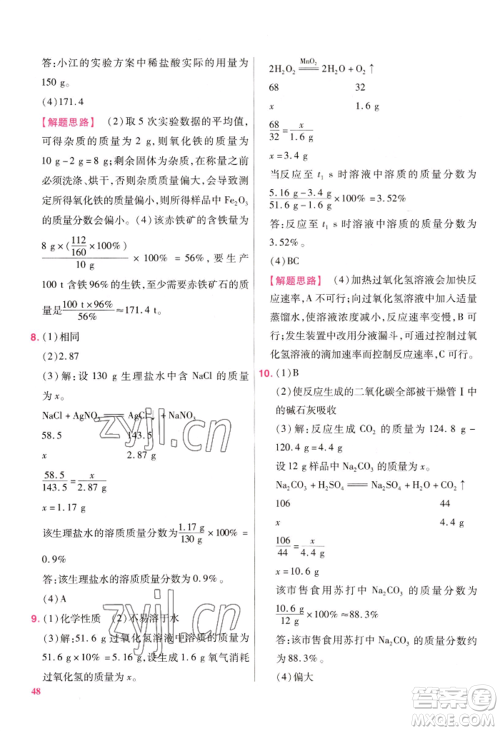 答:小江的实验方案中稀盐酸实际的用量为
150 g。
(4)171.4
【解题思路】 (2)取 5 次实验数据的平均值,
可得杂质的质量为 2 g,则氧化铁的质量为
10 g-2 g=8 g;剩余固体有一定的质量,因此
必须洗涤、烘干,否则杂质质量偏大,会导致测定
的氧化铁质量偏小,所得样品中 Fe₂O₃
的质量分数会偏小。(4)该赤铁矿的含铁量为
8 g×(112/160×100%)/10 g ×100%=56%,要生产
100 t含铁 96%的生铁,至少需要赤铁矿石的质
量为 100 t×96%/56% ≈171.4 t。
8. (1)相同
(2)2.87
(3)解:设 130 g 生理盐水中含 NaCl 的质量
为 x。
NaCl + AgNO₃ ═ AgCl↓ + NaNO₃
58.5 143.5
x 2.87 g
58.5/143.5=x/2.87 g
x=1.17 g
该生理盐水的溶质质量分数为 1.17 g/130 g ×100%=
0.9%
答:该生理盐水的溶质质量分数为 0.9%。
(4)A
9. (1)化学性质 (2)不易溶于水
(3)解:51.6 g 过氧化氢溶液中溶质质量为
51.6 g×10%=5.16 g,设产生 1.6 g 氧气消耗
过氧化氢的质量为 x。
48
2H₂O₂ ═MnO₂═ 2H₂O + O₂↑
68 32
x 1.6 g
68/32=x/1.6 g
x=3.4 g
当反应至 t₁ s 时溶液中溶质的质量分数为
5.16 g-3.4 g/51.6 g-1.6 g ×100%=3.52%
答:反应至 t₁ s 时溶液中溶质的质量分数为
3.52%。
(4)BC
【解题思路】 (4)加热过氧化氢溶液会加快反
应速率,A 不可行;向过氧化氢溶液中加入适量
蒸馏水,溶液浓度减小,反应速率减慢,B 可行;
发生装置中改用分液漏斗,可通过控制过氧
化氢溶液的滴加速率而控制反应速率,C
可行。
10. (1)B
(2)使反应生成的二氧化碳全部被干燥管Ⅰ中
的碱石灰吸收
(3)解:反应生成 CO₂ 的质量为 124.8 g-
120.4 g=4.4 g
设 12 g 样品中 Na₂CO₃ 的质量为 x。
Na₂CO₃ + H₂SO₄ ═ Na₂SO₄ + H₂O + CO₂↑
106 44
x 4.4 g
106/44=x/4.4 g
x=10.6 g
该市售食用苏打中 Na₂CO₃ 的质量分数为
10.6 g/12 g ×100%≈88.3%
答:该市售食用苏打中 Na₂CO₃ 的质量分数约
为 88.3%。
(4)偏大
zyjl.cn
zyjl.cn
作业精灵